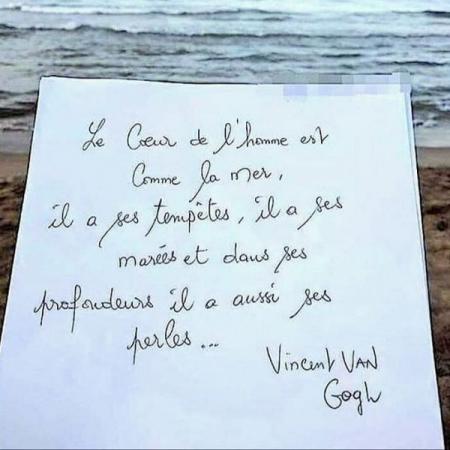 Le Cœur de l'homme est
Comme la mer,
il a ses tempêtes, il a ses
marées et dans ses
profondeurs il a aussi ses
perles...
Vincent VAN
Gogh